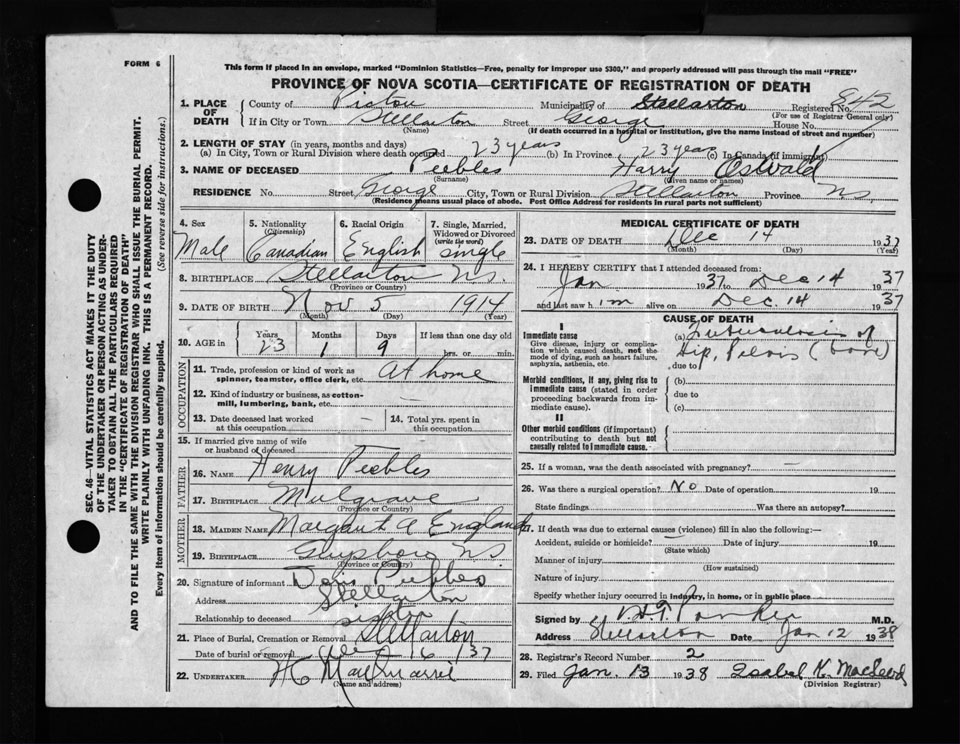 FORM 6
This form if placed in an envelope, marked "Dominion Statistics—Free, penalty for improper use $300," and properly addressed will pass through the mail "FREE"
PROVINCE OF NOVA SCOTIA—CERTIFICATE OF REGISTRATION OF DEATH
SEC. 46—VITAL STATISTICS ACT MAKES IT THE DUTY
OF THE UNDERTAKER OR PERSON ACTING AS UNDER-
TAKER TO OBTAIN ALL THE PARTICULARS REQUIRED
IN THE "CERTIFICATE OF REGISTRATION OF DEATH"
AND TO FILE THE SAME WITH THE DIVISION REGISTRAR WHO SHALL ISSUE THE BURIAL PERMIT.
WRITE PLAINLY WITH UNFADING INK. THIS IS A PERMANENT RECORD.
Every item of information should be carefully supplied. (See reverse side for instructions.)
1. PLACE OF DEATH
County of Pictou Municipality of Stellarton Registered No. 842
(For use of Registrar General only)
If in City or Town Stellarton Street George House No.
(Name) (If death occurred in a hospital or institution, give the name instead of street and number)
2. LENGTH OF STAY (in years, months and days)
(a) In City, Town or Rural Division where death occurred 23 years (b) In Province 23 years (c) In Canada (if immigrant)
3. NAME OF DECEASED Peebles Harry Oswald
(Surname) (Given name or names)
RESIDENCE No. Street George City, Town or Rural Division Stellarton Province N.S.
(Residence means usual place of abode. Post Office Address for residents in rural parts not sufficient)
4. Sex 5. Nationality (Citizenship) 6. Racial Origin 7. Single, Married, Widowed or Divorced (write the word)
Male Canadian English single
8. BIRTHPLACE Stellarton N.S.
(Province or Country)
9. DATE OF BIRTH Nov 5 1914
(Month) (Day) (Year)
10. AGE in Years Months Days If less than one day old
23 1 9 hrs. or min.
OCCUPATION
11. Trade, profession or kind of work as
spinner, teamster, office clerk, etc. At home
12. Kind of industry or business, as cotton-
mill, lumbering, bank, etc. —
13. Date deceased last worked
at this occupation —
14. Total yrs. spent in
this occupation
15. If married give name of wife
or husband of deceased
FATHER
16. NAME Henry Peebles
17. BIRTHPLACE Mulgrave
(Province or Country)
MOTHER
18. MAIDEN NAME Margaret A England
19. BIRTHPLACE Guysboro N.S.
(Province or Country)
20. Signature of informant Doris Peebles
Address Stellarton
Relationship to deceased sister
21. Place of Burial, Cremation or Removal Stellarton
Date of burial or removal Dec 16 / 37
22. UNDERTAKER
(Name and address)
MEDICAL CERTIFICATE OF DEATH
23. DATE OF DEATH Dec 14 1937
(Month) (Day) (Year)
24. I HEREBY CERTIFY that I attended deceased from:
Jan 1937 to Dec 14 1937
and last saw him alive on Dec. 14 1937
CAUSE OF DEATH
I
Immediate cause
Give disease, injury or complica-
tion which caused death, not the
mode of dying, such as heart failure,
asphyxia, asthenia, etc.
(a) Tuberculosis of
Hip, Pelvis (bone)
due to
Morbid conditions, if any, giving rise to
immediate cause (stated in order
proceeding backwards from im-
mediate cause).
(b)
due to
(c)
II
Other morbid conditions (if important)
contributing to death but not
causally related to immediate cause.
25. If a woman, was the death associated with pregnancy? —
26. Was there a surgical operation? No Date of operation 19
State findings Was there an autopsy?
27. If death was due to external causes (violence) fill in also the following:—
Accident, suicide or homicide? — Date of injury 19
(State which)
Manner of injury
(How sustained)
Nature of injury
Specify whether injury occurred in industry, in home, or in public place
Signed by Parker M.D.
Address Stellarton Date Jan 12 1938
28. Registrar's Record Number 2
29. Filed Jan. 13 1938 Isabel K. MacLeod
(Division Registrar)